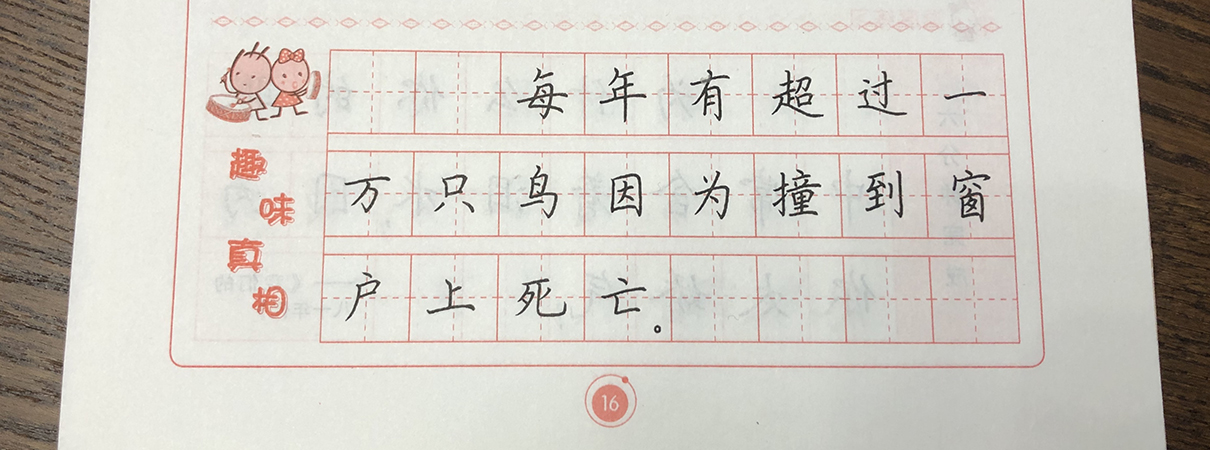 趣味真相
每年有超过一
万只鸟因为撞到窗
户上死亡。
16